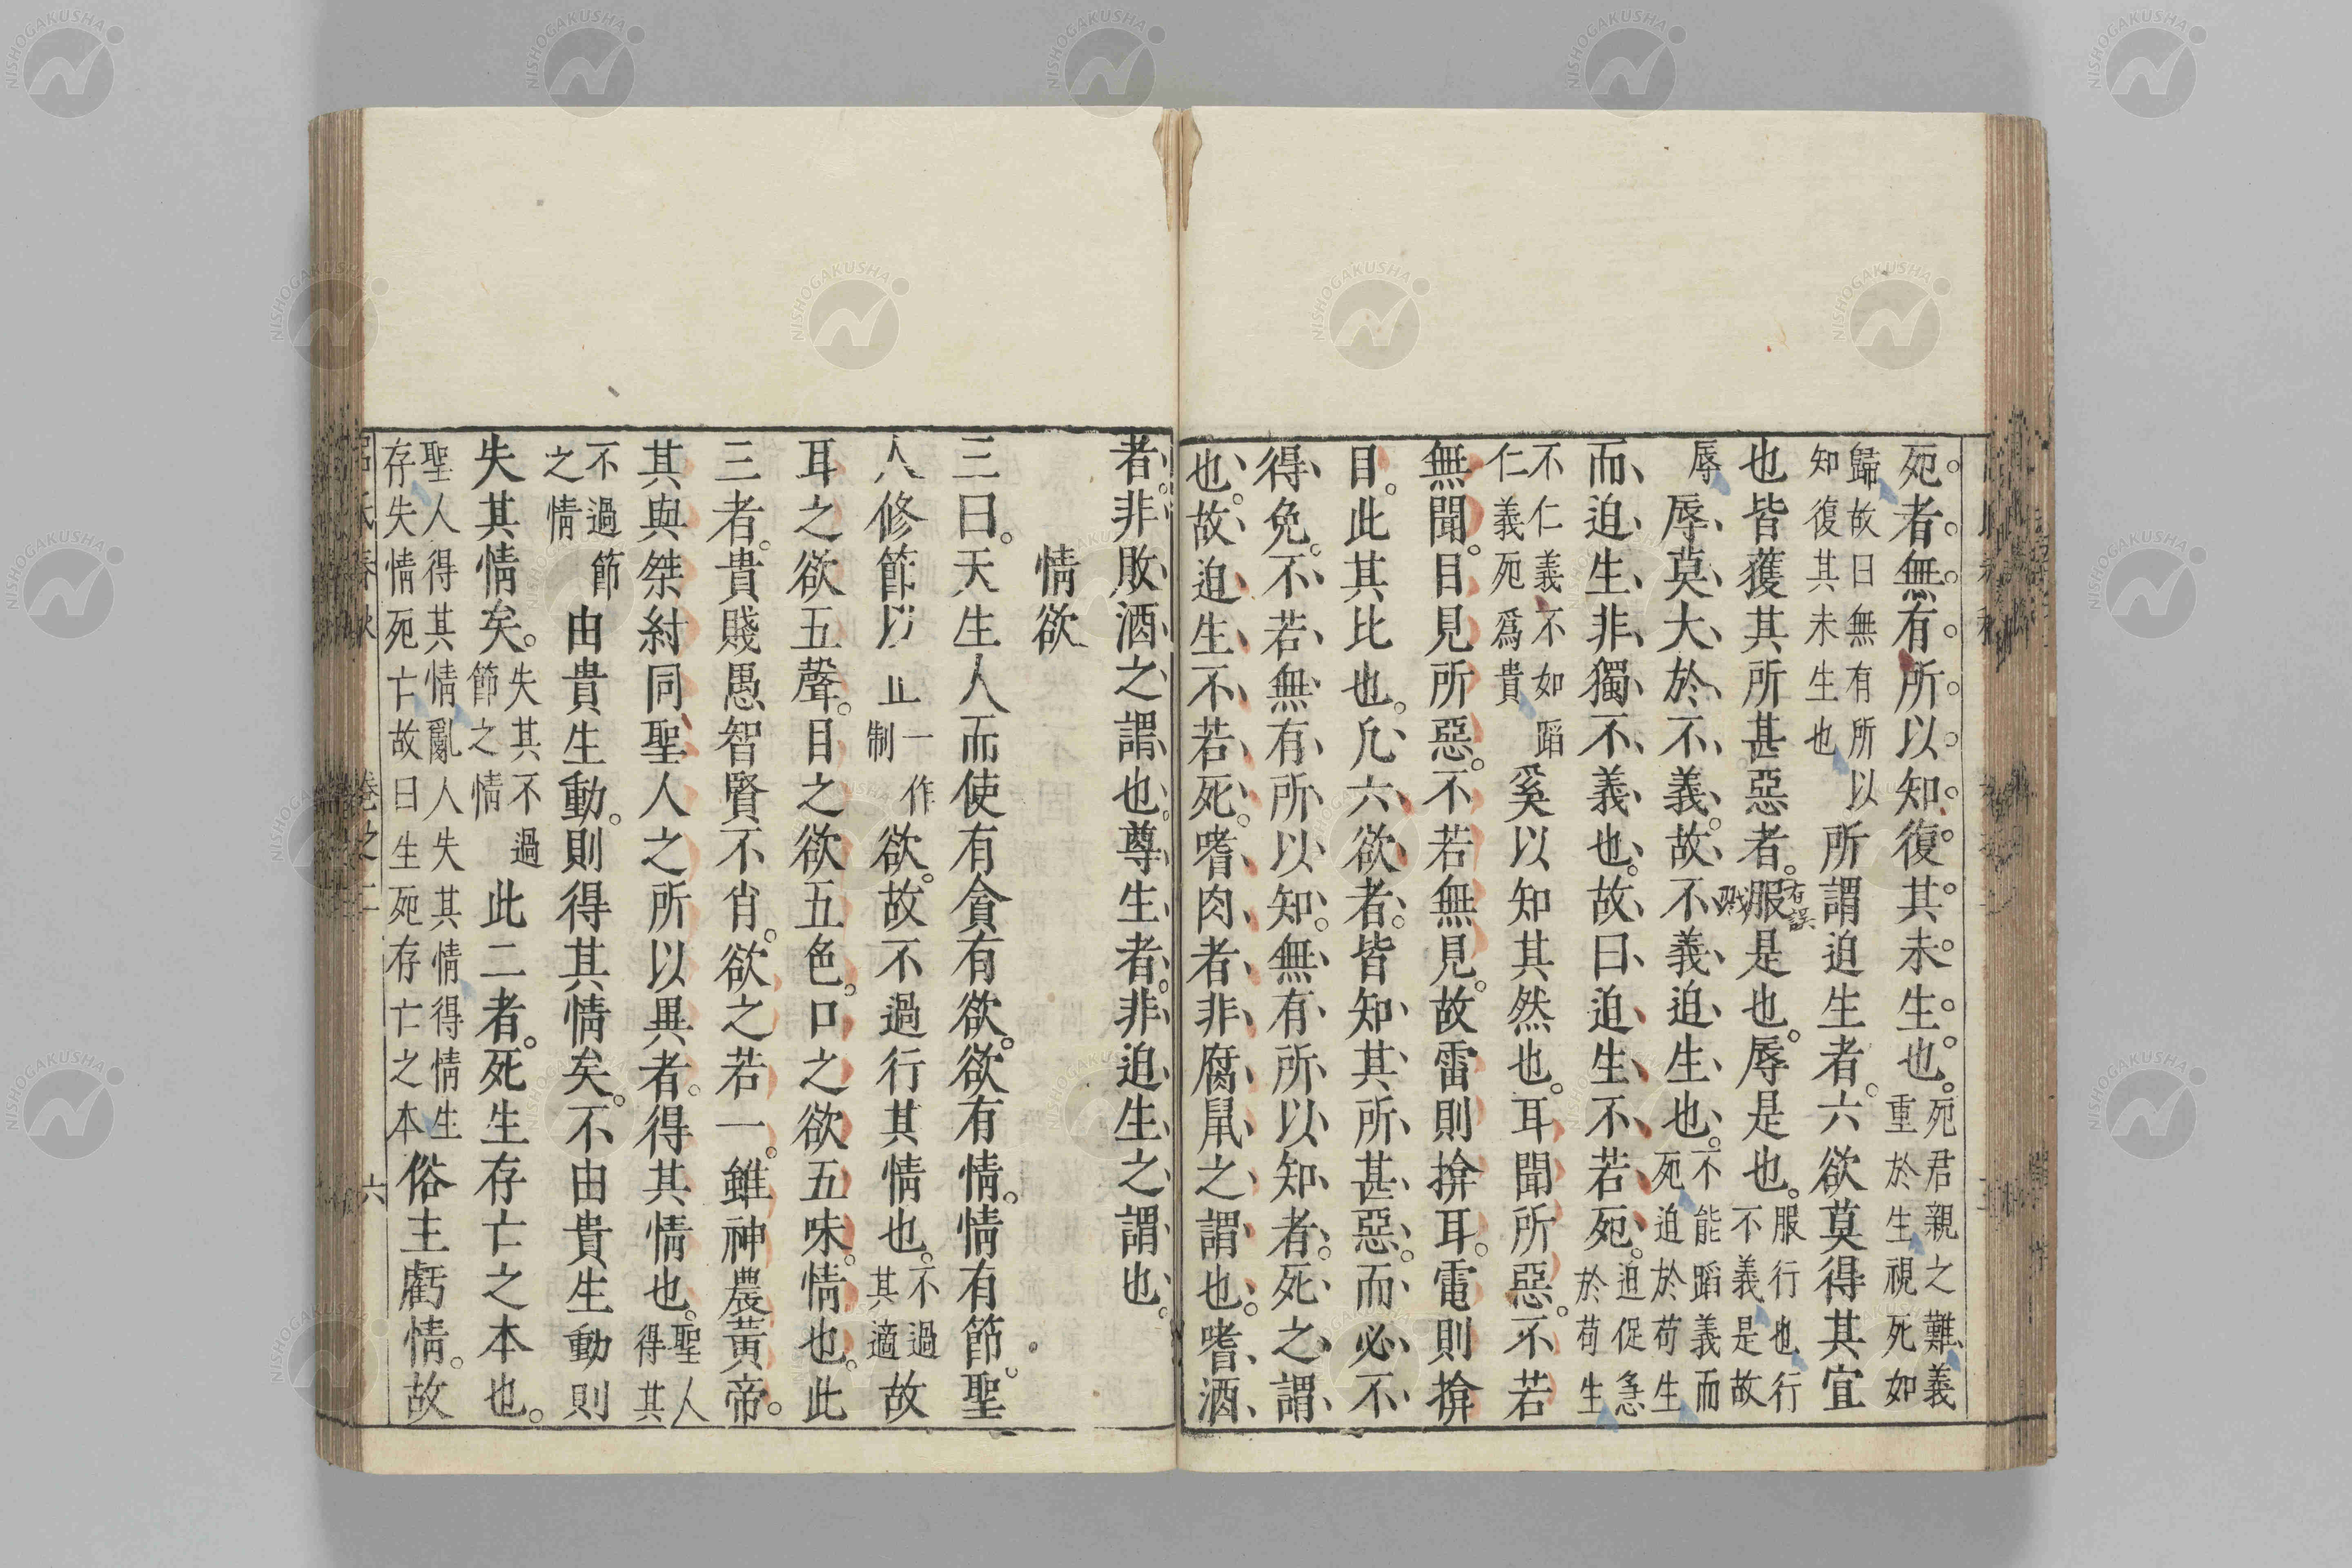 死者無有所以知復其未生也。死君親之難義重於生視死如
歸故曰無有所以知復其未生也所謂迫生者。六欲莫得其宜
也皆獲其所甚惡者。服是也。辱是也。服行也行不義是故
辱辱莫大於不義。故不義迫生也。不能蹈義而死迫於苟生
而迫生非獨不義也。故曰迫生不若死。迫促急於苟生
不仁義不如蹈仁義死爲貴奚以知其然也。耳聞所惡。不若
無聞。目見所惡。不若無見。故雷則揜耳。電則揜
目。此其比也。凡六欲者。皆知其所甚惡。而必不
得免。不若無有所以知。無有所以知者。死之謂
也。故迫生不若死。嗜肉者非腐鼠之謂也。嗜酒
者。非敗酒之謂也。尊生者。非迫生之謂也。
情欲
三曰。天生人而使有貪有欲。欲有情。情有節。聖
人修節以止一作制欲。故不過行其情也。不過其適故
耳之欲五聲。目之欲五色。口之欲五味。情也。此
三者。貴賤愚智賢不肖。欲之若一。雖神農黃帝。
其與桀紂同聖人之所以異者。得其情也。聖人得其
不過節之情由貴生動。則得其情矣。不由貴生動則
失其情矣。失其不過節之情此二者。死生存亡之本也。
聖人得其情亂人失其情得情生存失情死亡故曰生死存亡之本俗主虧情。故
呂氏春秋 卷之二 六
有誤
NISHOGAKUSHA